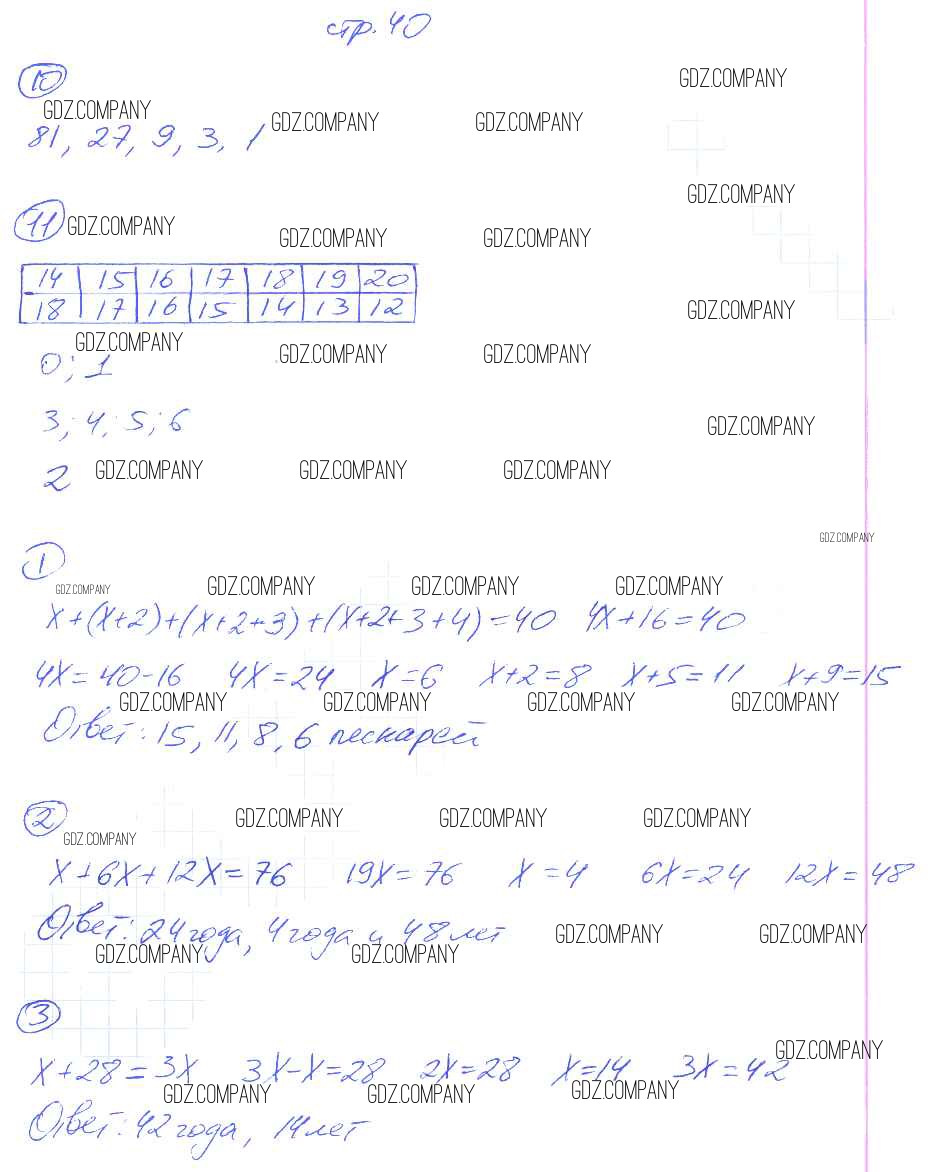 стр. 40
10
GDZ.COMPANY
GDZ.COMPANY GDZ.COMPANY GDZ.COMPANY
81, 27, 9, 3, 1
GDZ.COMPANY
11 GDZ.COMPANY GDZ.COMPANY GDZ.COMPANY
14 15 16 17 18 19 20
18 17 16 15 14 13 12
GDZ.COMPANY
GDZ.COMPANY GDZ.COMPANY GDZ.COMPANY
0; 1
3; 4; 5; 6
GDZ.COMPANY
2 GDZ.COMPANY GDZ.COMPANY GDZ.COMPANY
GDZ.COMPANY
1
GDZ.COMPANY GDZ.COMPANY GDZ.COMPANY GDZ.COMPANY
x+(x+2)+(x+2+3)+(x+2+3+4)=40 4x+16=40
4x=40-16 4x=24 x=6 x+2=8 x+5=11 x+9=15
GDZ.COMPANY GDZ.COMPANY GDZ.COMPANY GDZ.COMPANY
Ответ: 15, 11, 8, 6 пескарей
2 GDZ.COMPANY GDZ.COMPANY GDZ.COMPANY
GDZ.COMPANY
x+6x+12x=76 19x=76 x=4 6x=24 12x=48
Ответ: 24 года, 4 года и 48 лет GDZ.COMPANY GDZ.COMPANY
GDZ.COMPANY GDZ.COMPANY
3
GDZ.COMPANY
x+28=3x 3x-x=28 2x=28 x=14 3x=42
GDZ.COMPANY GDZ.COMPANY GDZ.COMPANY
Ответ: 42 года, 14 лет